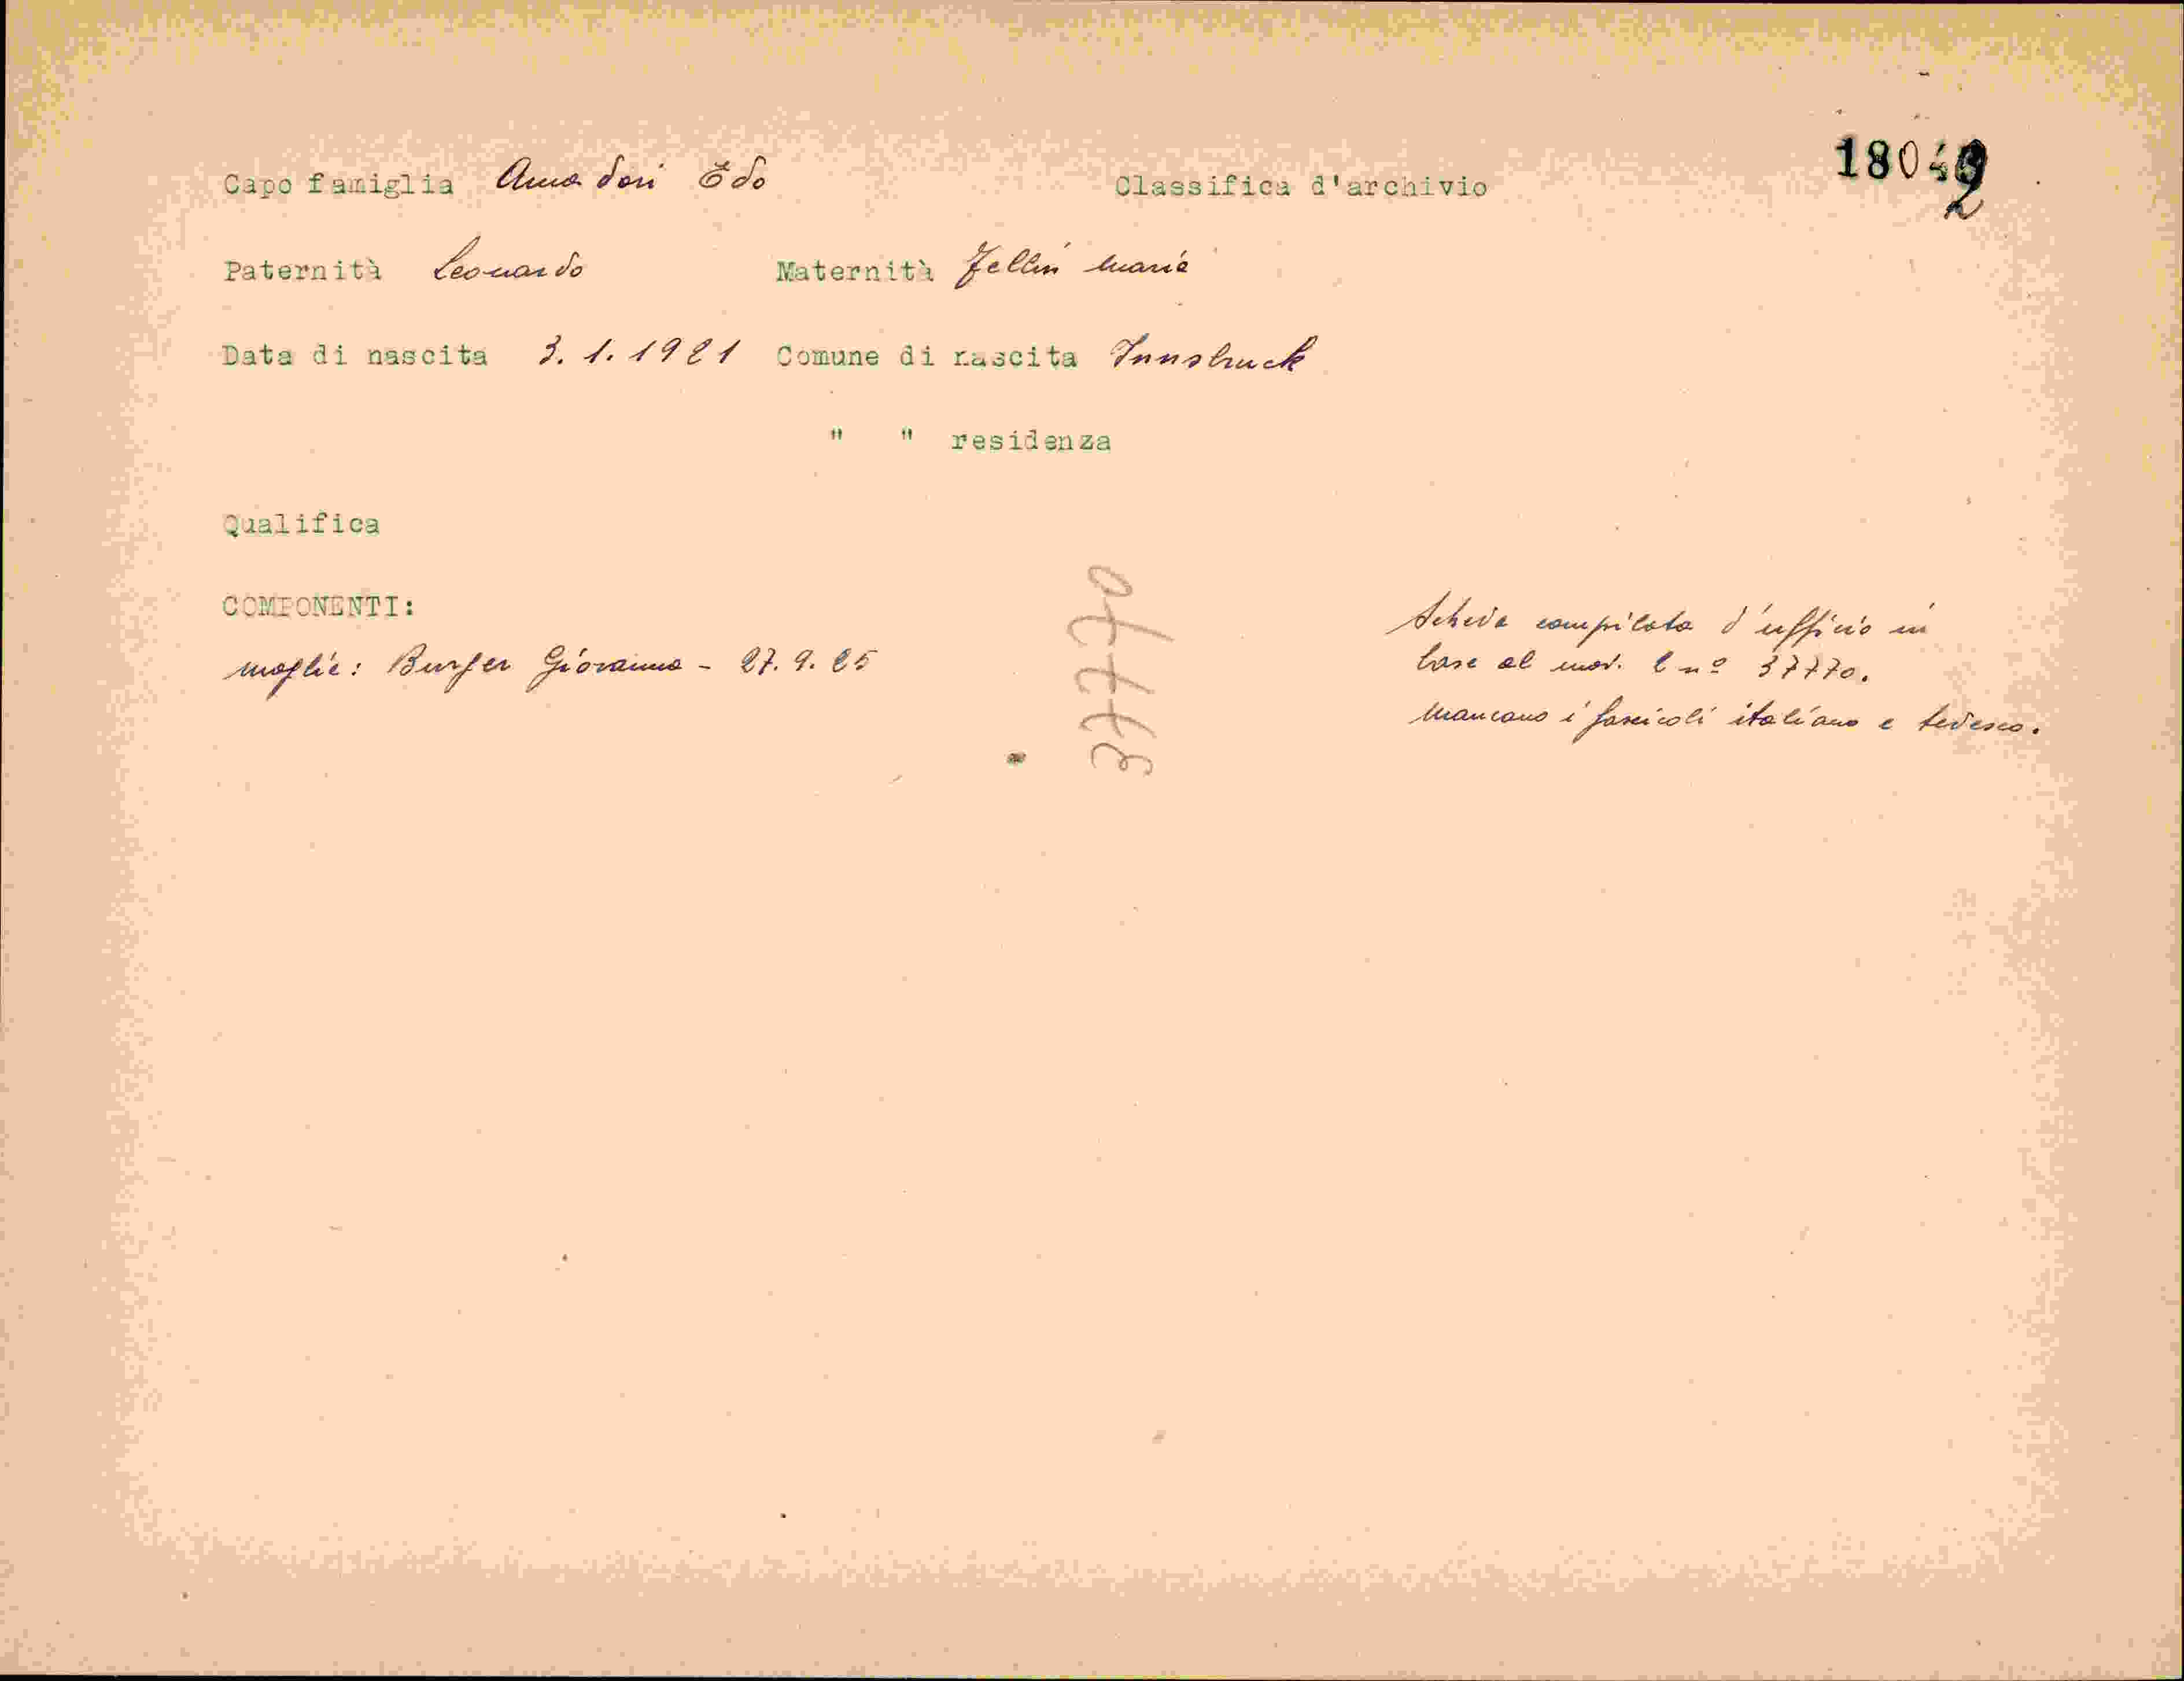 Capo famiglia Amadori Edo Classifica d'archivio 180
Paternità Leonardo Maternità Zellin Maria
Data di nascita 3. 1. 1921 Comune di nascita Innsbruck
" " residenza
Qualifica
COMPONENTI:
moglie: Burger Giovanna - 27. 9. 25
37770
Scheda compilata d'ufficio in
base al mod. 2 nº 37770.
Mancano i fascicoli italiano e tedesco.